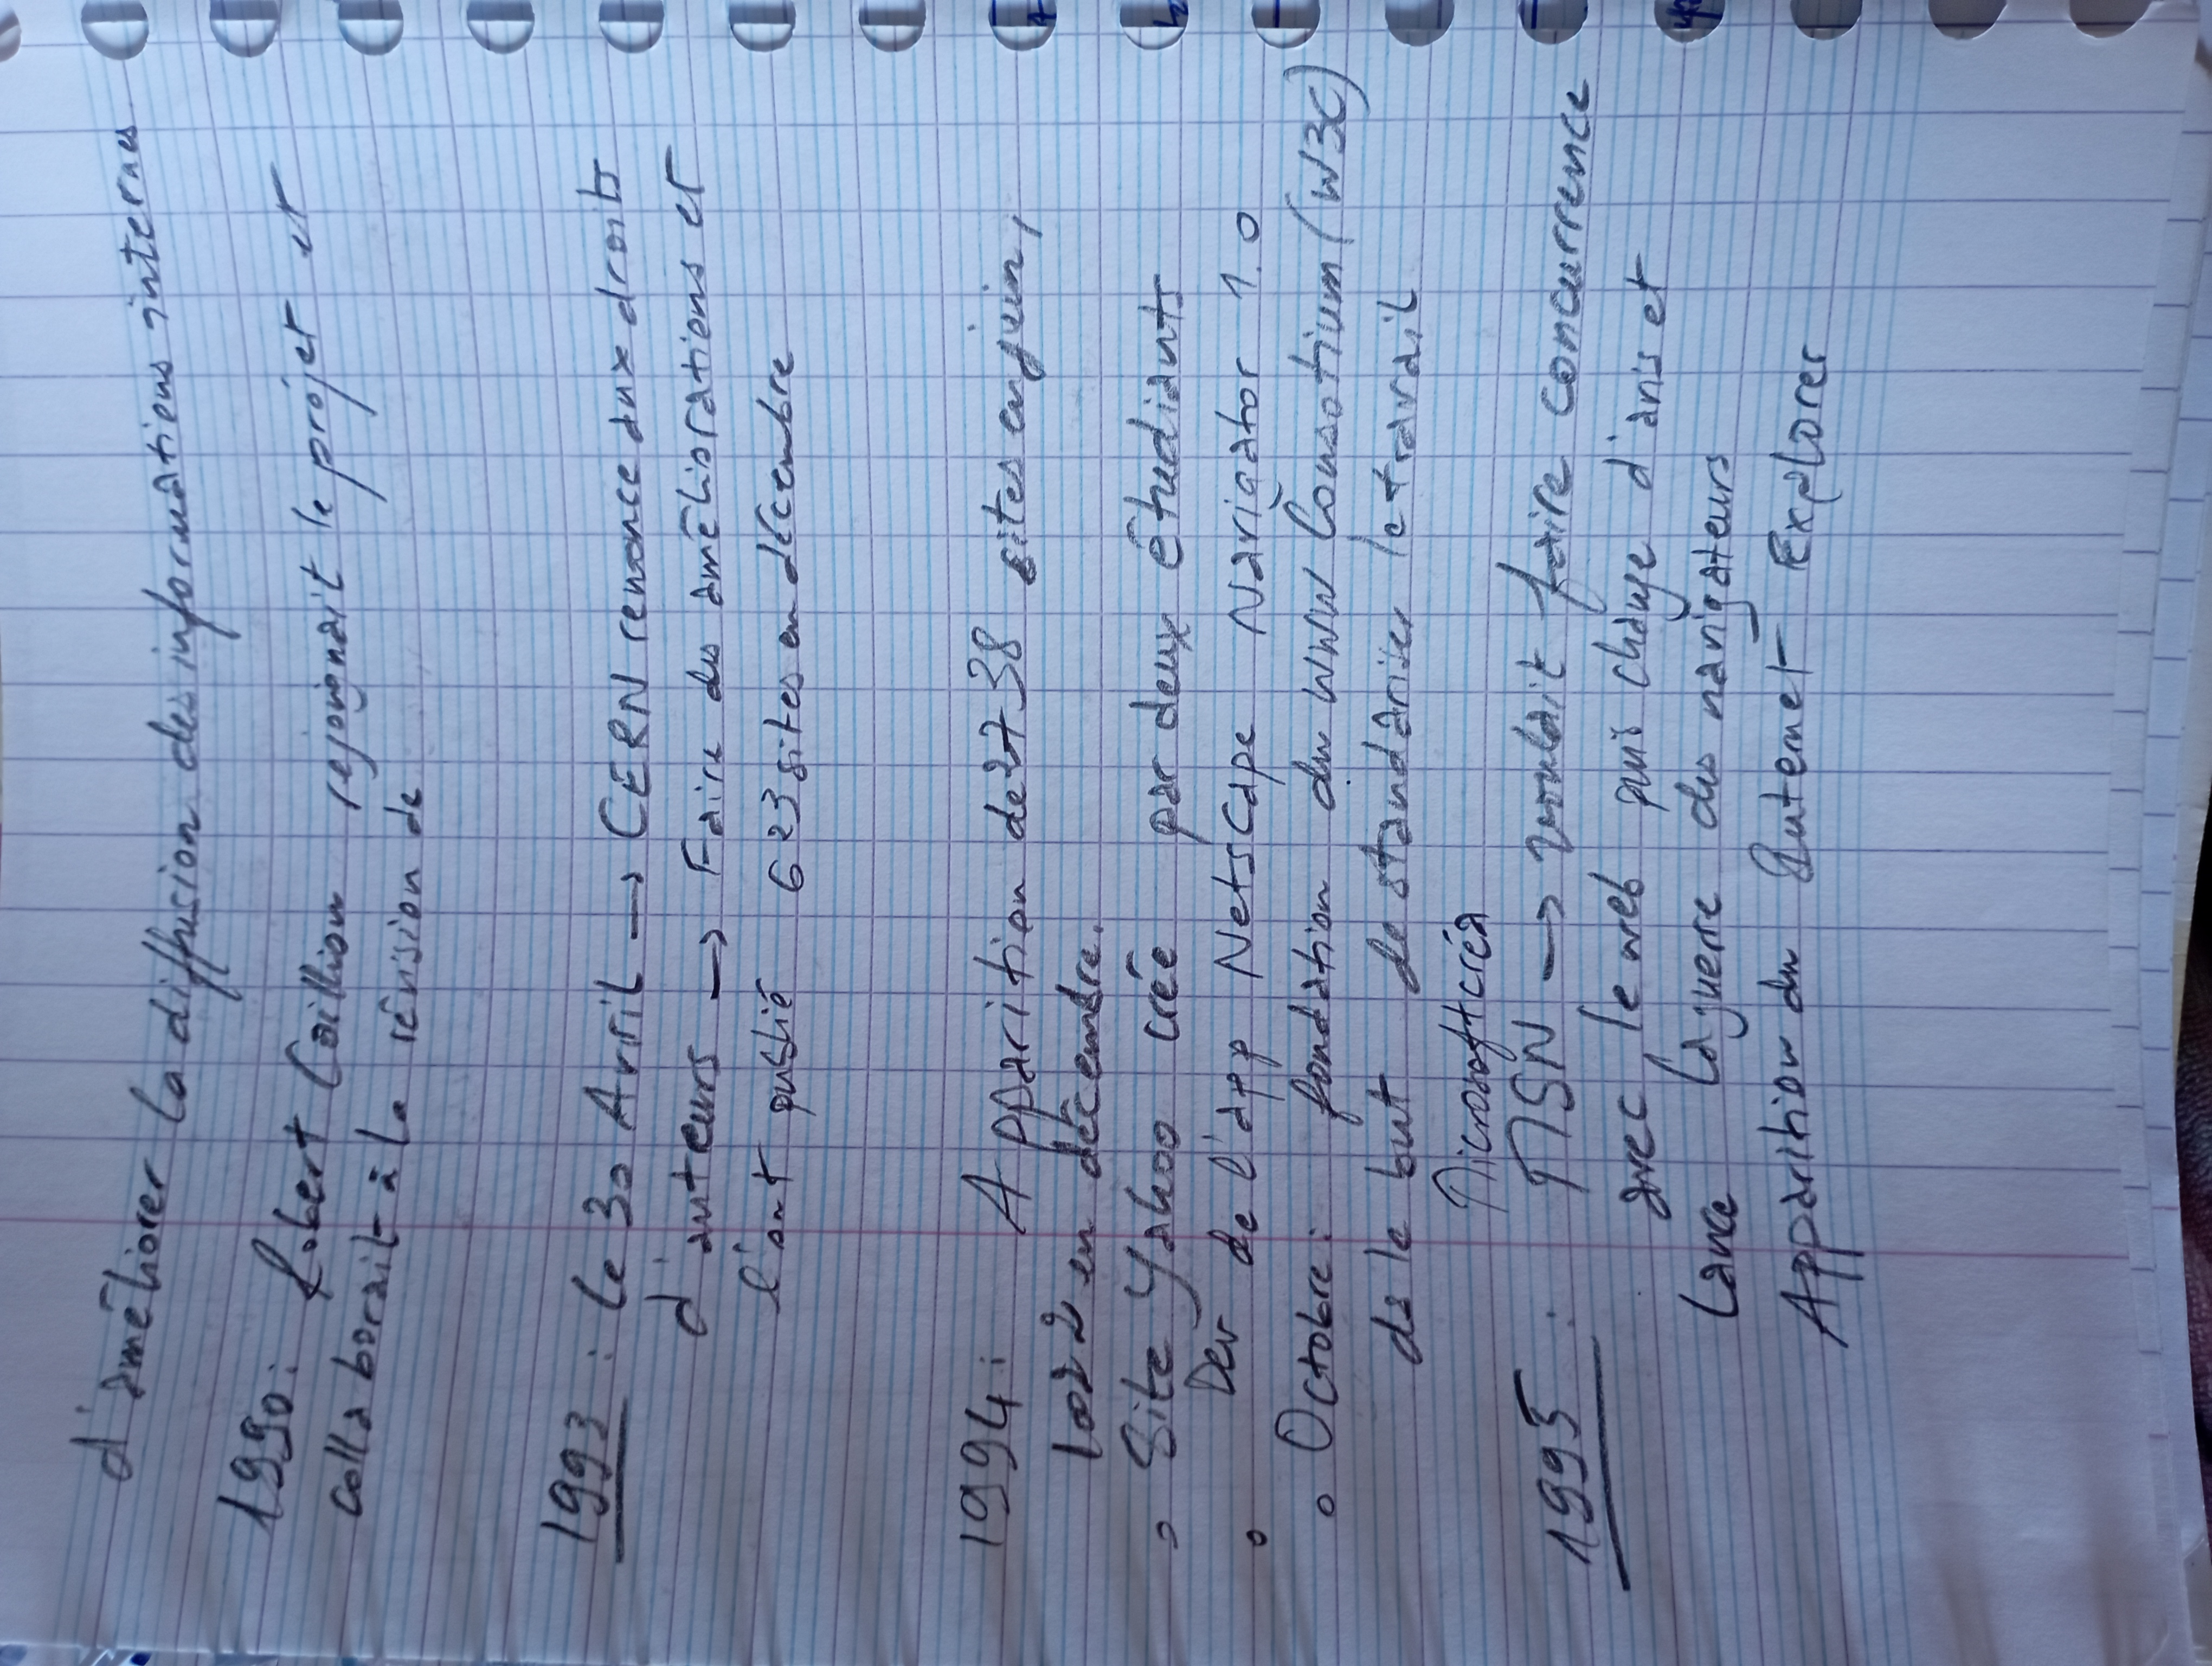 d'améliorer la diffusion des informations internes
1990: Robert Cailliau rejoignait le projet et
collaborait à la révision de
1993 : le 30 Avril → CERN renonce aux droits
d'auteurs → Faire des améliorations et
l'ont publié 623 sites en décembre
1994: Apparition de 2738 sites en juin,
10022 en décembre.
◦ Site Yahoo crée par deux étudiants
◦ Dev de l'app Netscape Naviagator 1.0
◦ Octobre: fondation du WWW Consotium (W3C)
ds le but de standariser le travail
Microsoft créa
1995 : MSN → voulait faire concurrence
avec le web puis change d'avis et
Lance la guerre des navigateurs
Apparition du Internet Explorer